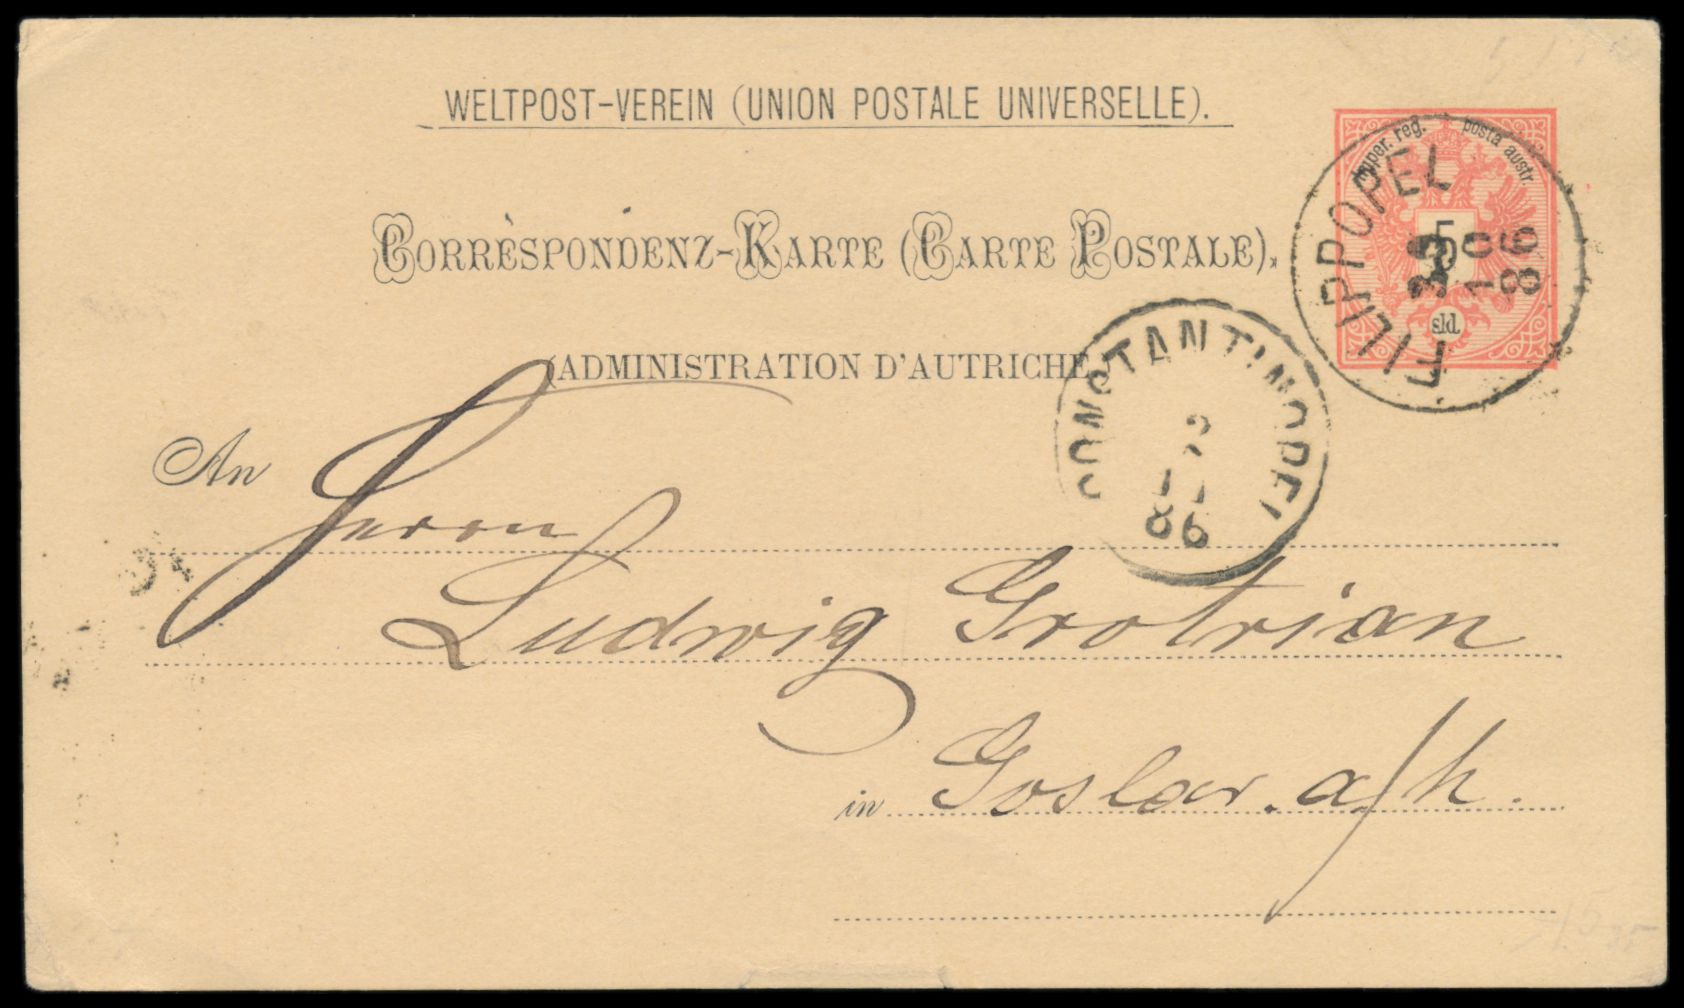 WELTPOST-VEREIN (UNION POSTALE UNIVERSELLE).
imper. reg. posta austr.
5
sld.
FILIPPOPEL
10
86
CORRESPONDENZ-KARTE (CARTE POSTALE).
(ADMINISTRATION D'AUTRICHE
CONSTANTINOPEL
2
11
86
An
Herrn
Ludwig Grotrian
in Goslar. a/h.